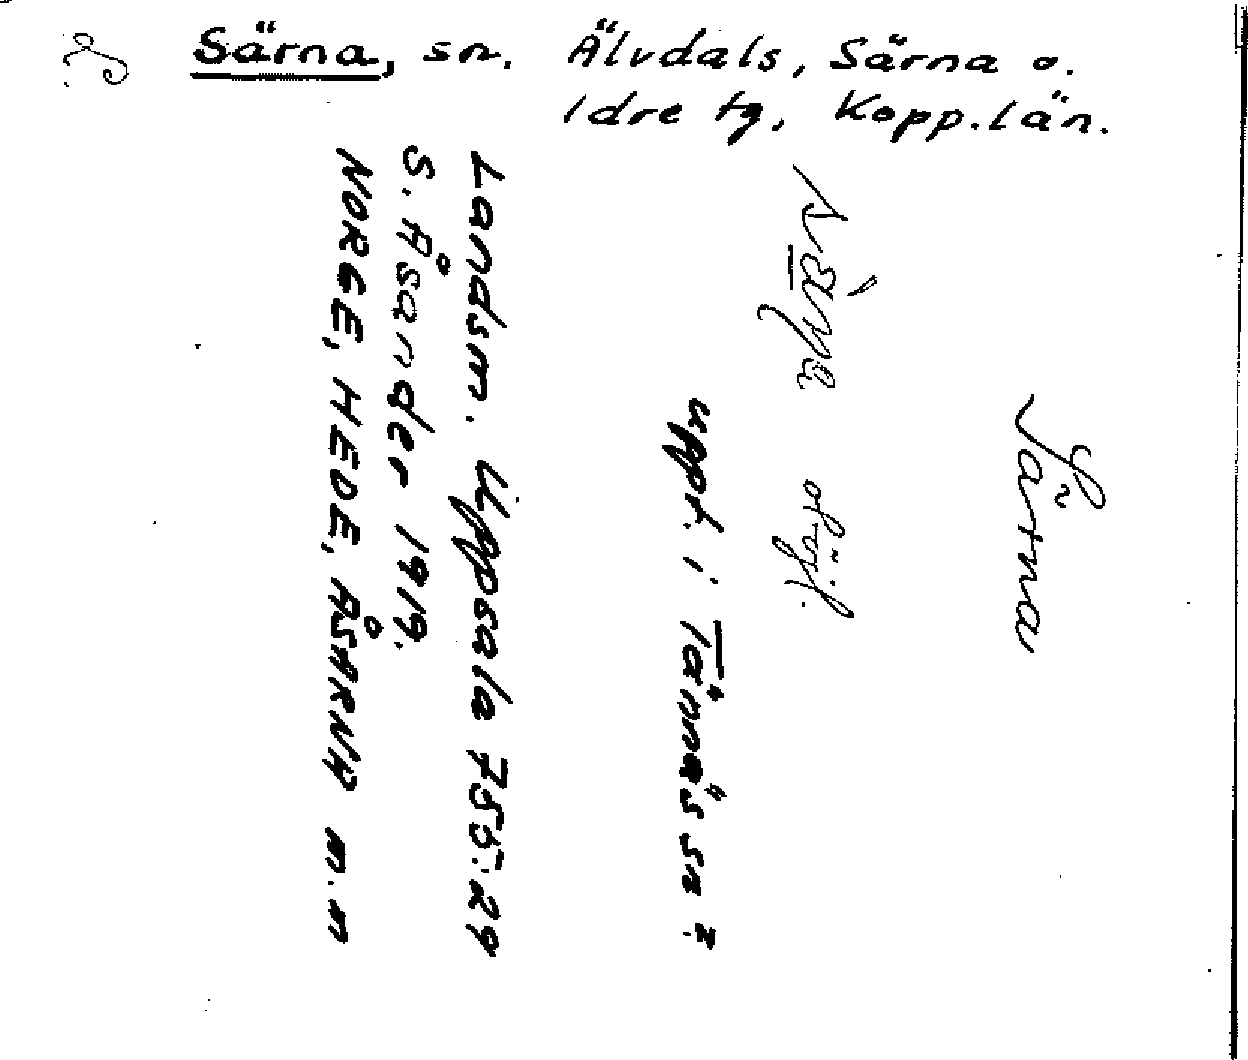 Särna, sn. Älvdals, Särna o.
Idre tg, Kopp.län.
Särna
oböjl.
uppt. i Tännäs sn?
Landsm. Uppsala 755:29
S. Åsander 1919.
NORGE, HEDE, ÅSARNA m.m